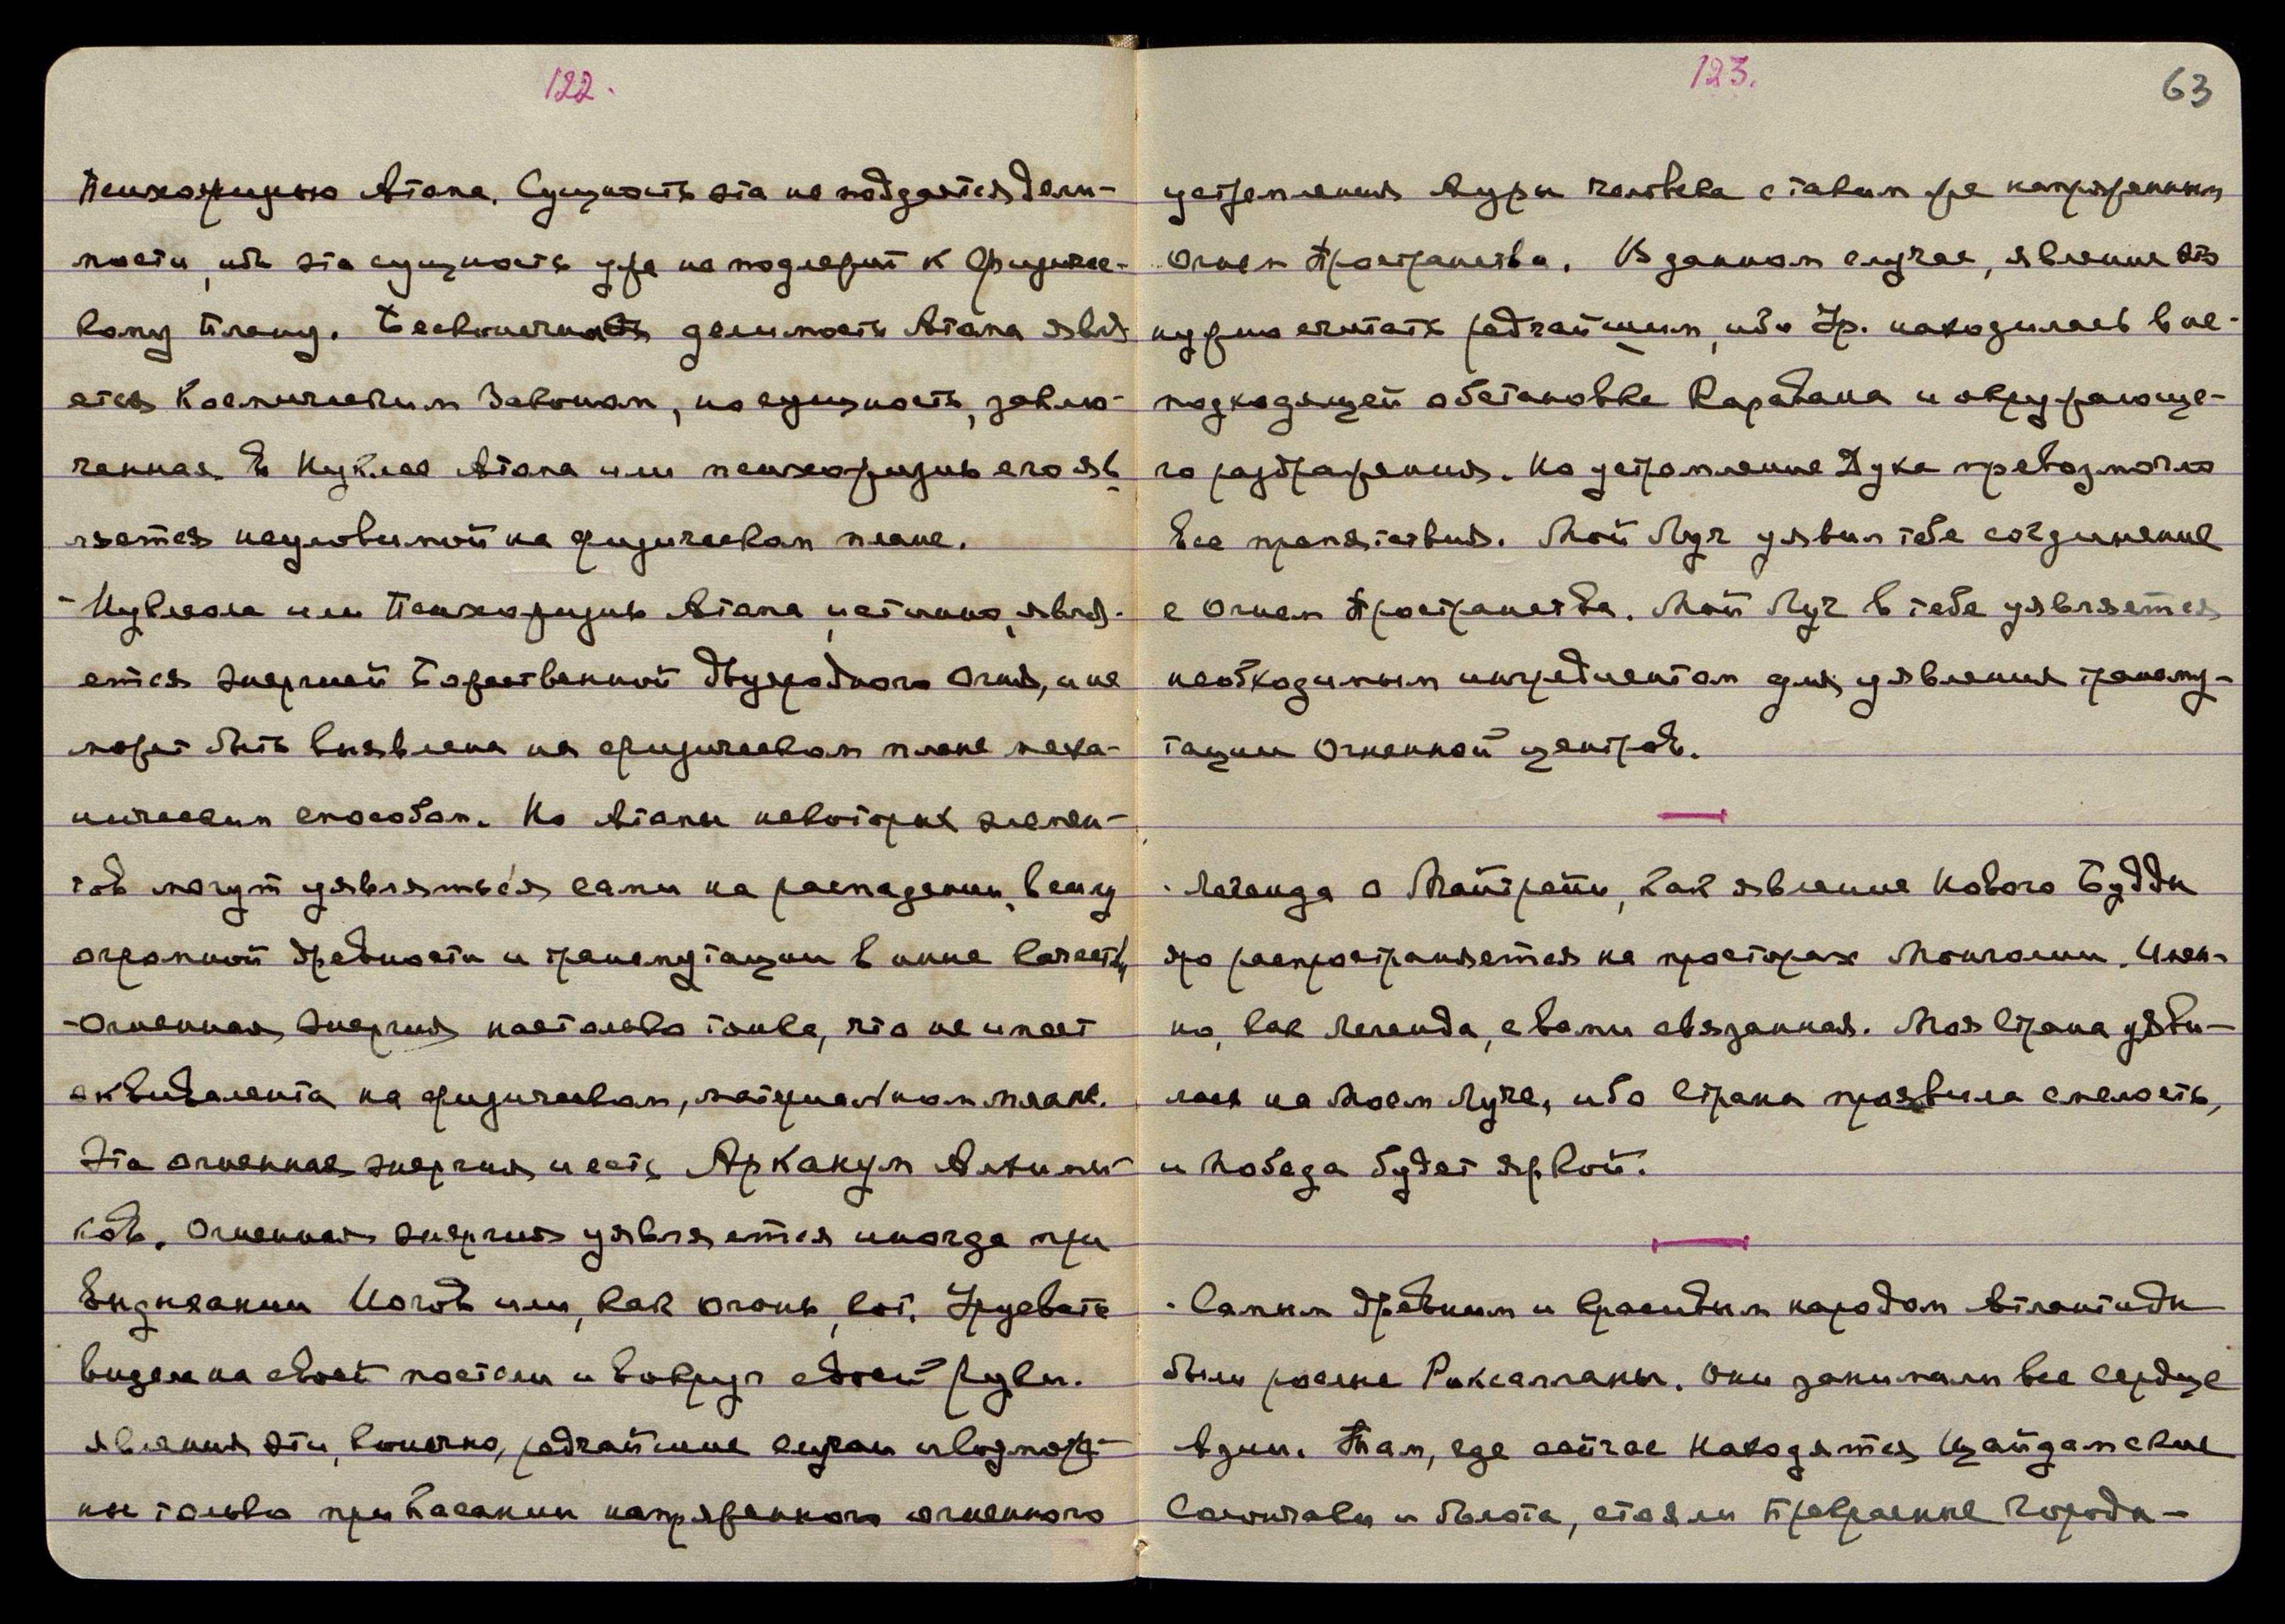 122.
Психожизнью Атома. Сущность эта не поддается дели-
мости, ибо эта сущность уже не подлежит к физичес-
кому плану. Бесконечность делимость Атома явля-
ется Космическим Законом, но сущность, заклю-
ченная в Нуклее Атома или психожизнь его яв-
ляется неуловимой на физическом плане.
- Нуклеола или Психожизнь Атома, истинно, явля-
ется энергией Божественной двуродного Огня, и не
может быть выявлена на физическом плане меха-
ническим способом. Но Атомы некоторых элемен-
тов могут уявляться сами на распадении, в силу
огромной древности и трансмутации в иные качества,
- Огненная энергия настолько тонка, что не имеет
эквивалента на физическом, материальном плане.
Эта огненная энергия и есть Арканум Алхими-
ков. Огненная энергия уявляется иногда при
Вызнании Йогов или, как огонь, кот. Урусвати
видела на своей постели и вокруг своей руки.
явления эти, конечно, редчайшие случаи и возмож-
ны только при касании напряженного огненного
123.
63
устремления Ауры человека с таким же напряженным
Огнем Пространства. В данном случае, явление это
нужно считать редчайшим, ибо Ур. находилась в не-
подходящей обстановке Каравана и окружающе-
го раздражения. Но устремление Духа превозмогло
все препятствия. Мой Луч уявил тебе соединение
с Огнем Пространства. Мой Луч в тебе уявляется
необходимым ингредиентом для уявления трансму-
тации Огненной центров.
· Легенда о Майтрейи, как явление Нового Будды
яро распространяется на просторах Монголии. Имен-
но, как Легенда, с вами связанная. Моя Страна уяви-
лась на Моем Луче, ибо Страна проявила смелость,
и Победа будет яркой.
· Самым древним и красивым народом Атлантиды
были рослые Роксалланы. Они занимали все сердце
Азии. Там, где сейчас находятся Цайдамские
Солончаки и болота, стояли Прекрасные Города-